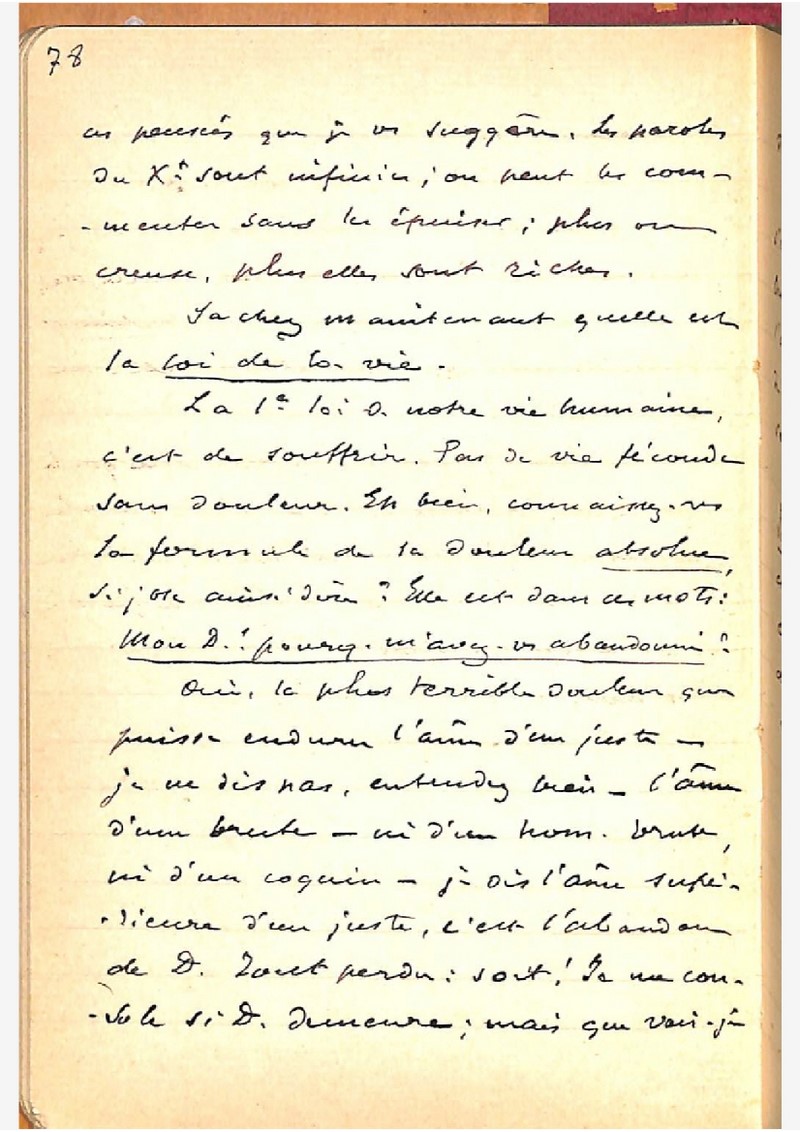 78
ces pensées que je vs suggère. Les paroles
du Xt sont infinies ; on peut les com-
-menter sans les épuiser ; plus on
creuse, plus elles sont riches.
Sachez maintenant quelle est
la loi de la vie.
La 1e loi d. notre vie humaine,
c'est de souffrir. Pas de vie féconde
sans douleur. Eh bien, connaissez-vs
la formule de la douleur absolue,
si j'ose ainsi dire ? Elle est dans ces mots :
Mon D. ! pourq. m'avez-vs abandonné ?
Oui, la plus terrible douleur que
puisse endurer l'âme d'un juste —
je ne dis pas, entendez bien — l'âme
d'une brute — ni d'un hom. brute,
ni d'un coquin — je dis l'âme supé-
-rieure d'un juste, c'est l'abandon
de D. Tout perdu : soit ! Je me con-
-sole si D. demeure ; mais que vais-je